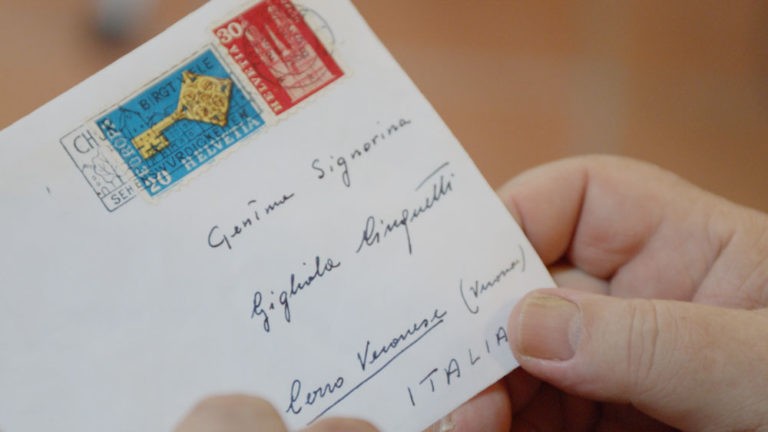 30
HELVETIA
CHUR BIRGT VIELE
EUROPA
20 HELVETIA
SEHENSWÜRDIGKEITEN
Gent.ma Signorina
Gigliola Cinquetti
Cerro Veronese (Verona)
ITALIA